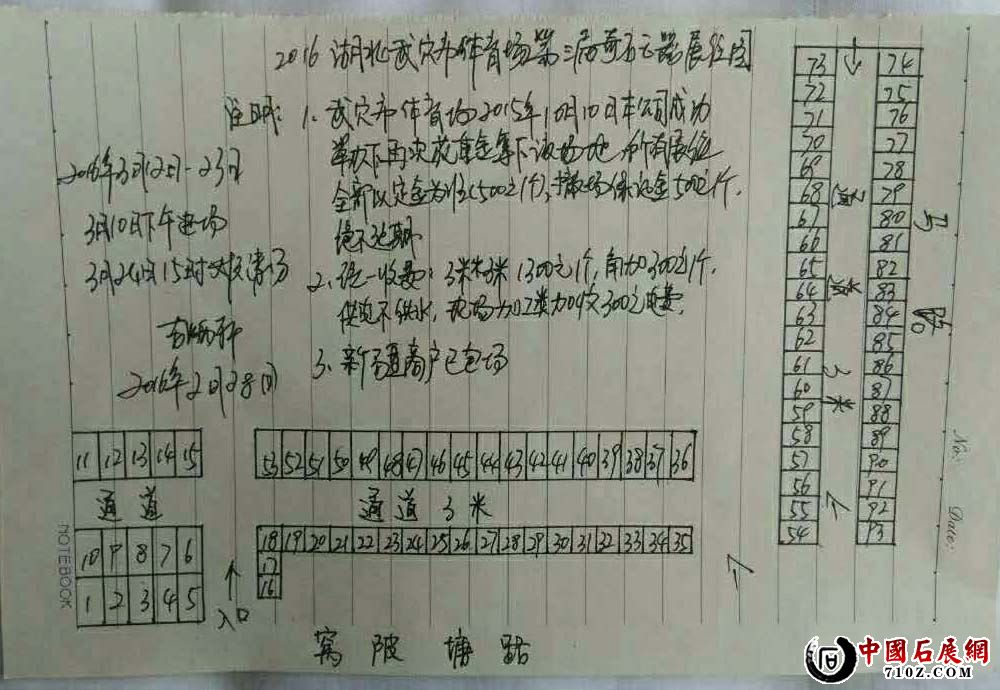 2016湖北武穴市体育场第二届奇石玉器展位图
注明: 1、武穴市体育场2015年10月10日本公司成功
举办下再次放重金拿下该场地,所有展位
全部以定金为准(500元1个),撤场保证金500元1个,
2、统一收费: 3米×3米 1300元1个,角加300元1个.
供电不供水,现场加工类加收300元电费.
3、新疆商户已包场
2016年3月12日-23日
3月10日下午进场
3月24日15时以后清场
2016年2月28日
11 12 13 14 15
通道
10 9 8 7 6
1 2 3 4 5
入口
53 52 51 50 49 48 47 46 45 44 43 42 41 40 39 38 37 36
通道 3米
18 19 20 21 22 23 24 25 26 27 28 29 30 31 32 33 34 35
17
16
窝陂塘路
73 74
72 75
71 76
70 77
69 78
68 79
67 80
66 81
65 82
64 83
63 84
62 85
61 86
60 87
59 88
58 89
57 90
56 91
55 92
54 93
通道3米
马路
No:
Date:
NOTEBOOK
中國石展網
710Z.COM